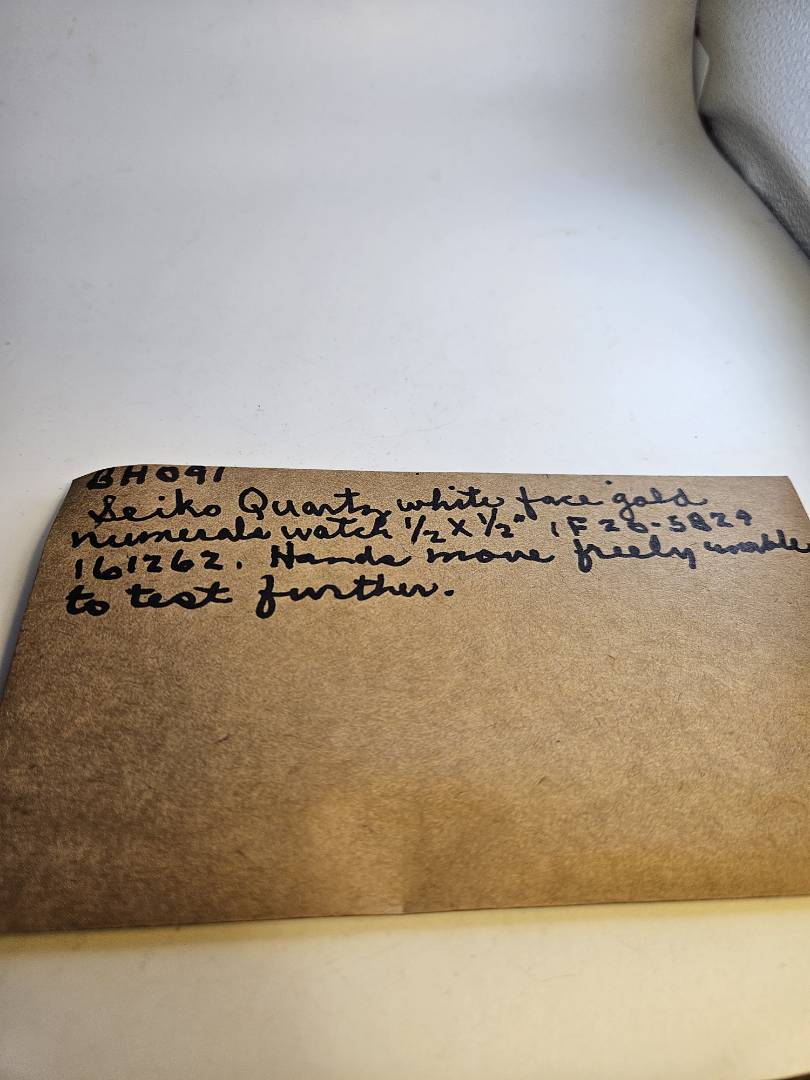 BH091
Seiko Quartz white face gold
numerals watch 1/2 X 1/2" 1F20-5A29
161262. Hands move freely unable
to test further.